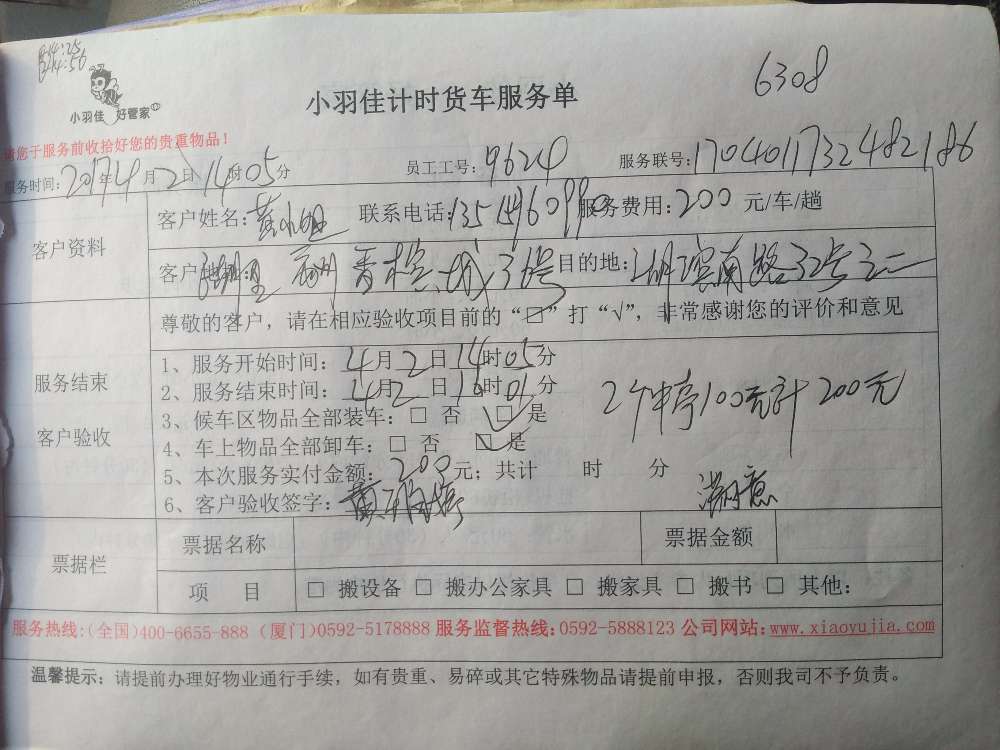 14:25
14:56
6308
小羽佳 好管家
小羽佳计时货车服务单
请您于服务前收拾好您的贵重物品!
服务时间: 2017年4月2日14时05分 员工工号: 9624 服务联号: 1704011732482186
客户资料
客户姓名: 黄小姐 联系电话: 服务费用: 200 元/车/趟
客户 36号 目的地: 湖滨南路32号之二
尊敬的客户, 请在相应验收项目前的“□”打“√”, 非常感谢您的评价和意见
服务结束
客户验收
1、服务开始时间: 4月2日14时05分
2、服务结束时间: 4月2日16时01分
3、候车区物品全部装车: □ 否 □ 是
4、车上物品全部卸车: □ 否 □ 是
2个 100元计200元
5、本次服务实付金额: 200元; 共计 时 分
6、客户验收签字: 黄 满意
票据栏
票据名称 票据金额
项 目 □ 搬设备 □ 搬办公家具 □ 搬家具 □ 搬书 □ 其他:
服务热线:(全国)400-6655-888 (厦门)0592-5178888 服务监督热线:0592-5888123 公司网站:www.xiaoyujia.com
温馨提示: 请提前办理好物业通行手续, 如有贵重、易碎或其它特殊物品请提前申报, 否则我司不予负责。